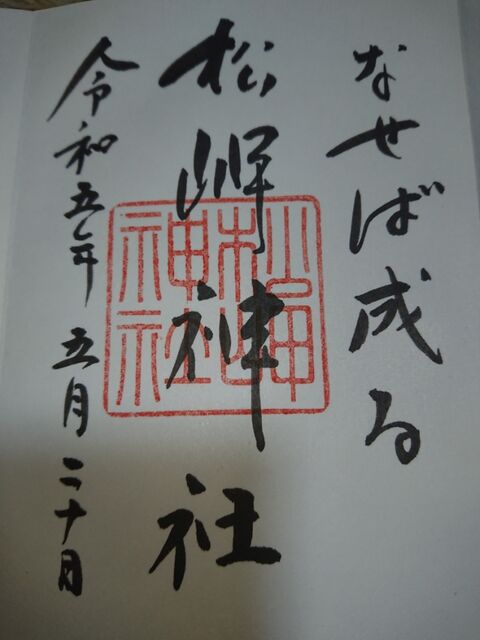 なせば成る
松岬神社
令和五年五月二十日
松岬神社